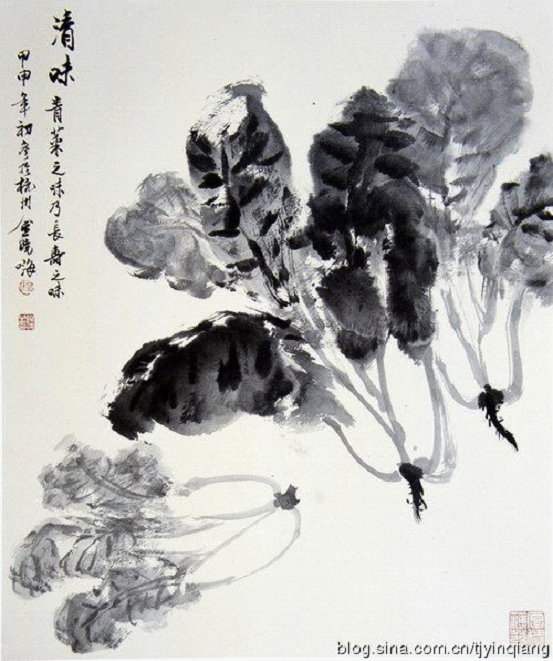 清味 青菜之味乃長壽之味
甲申年初於杭州 金曉
blog.sina.com.cn/tjyinqiang